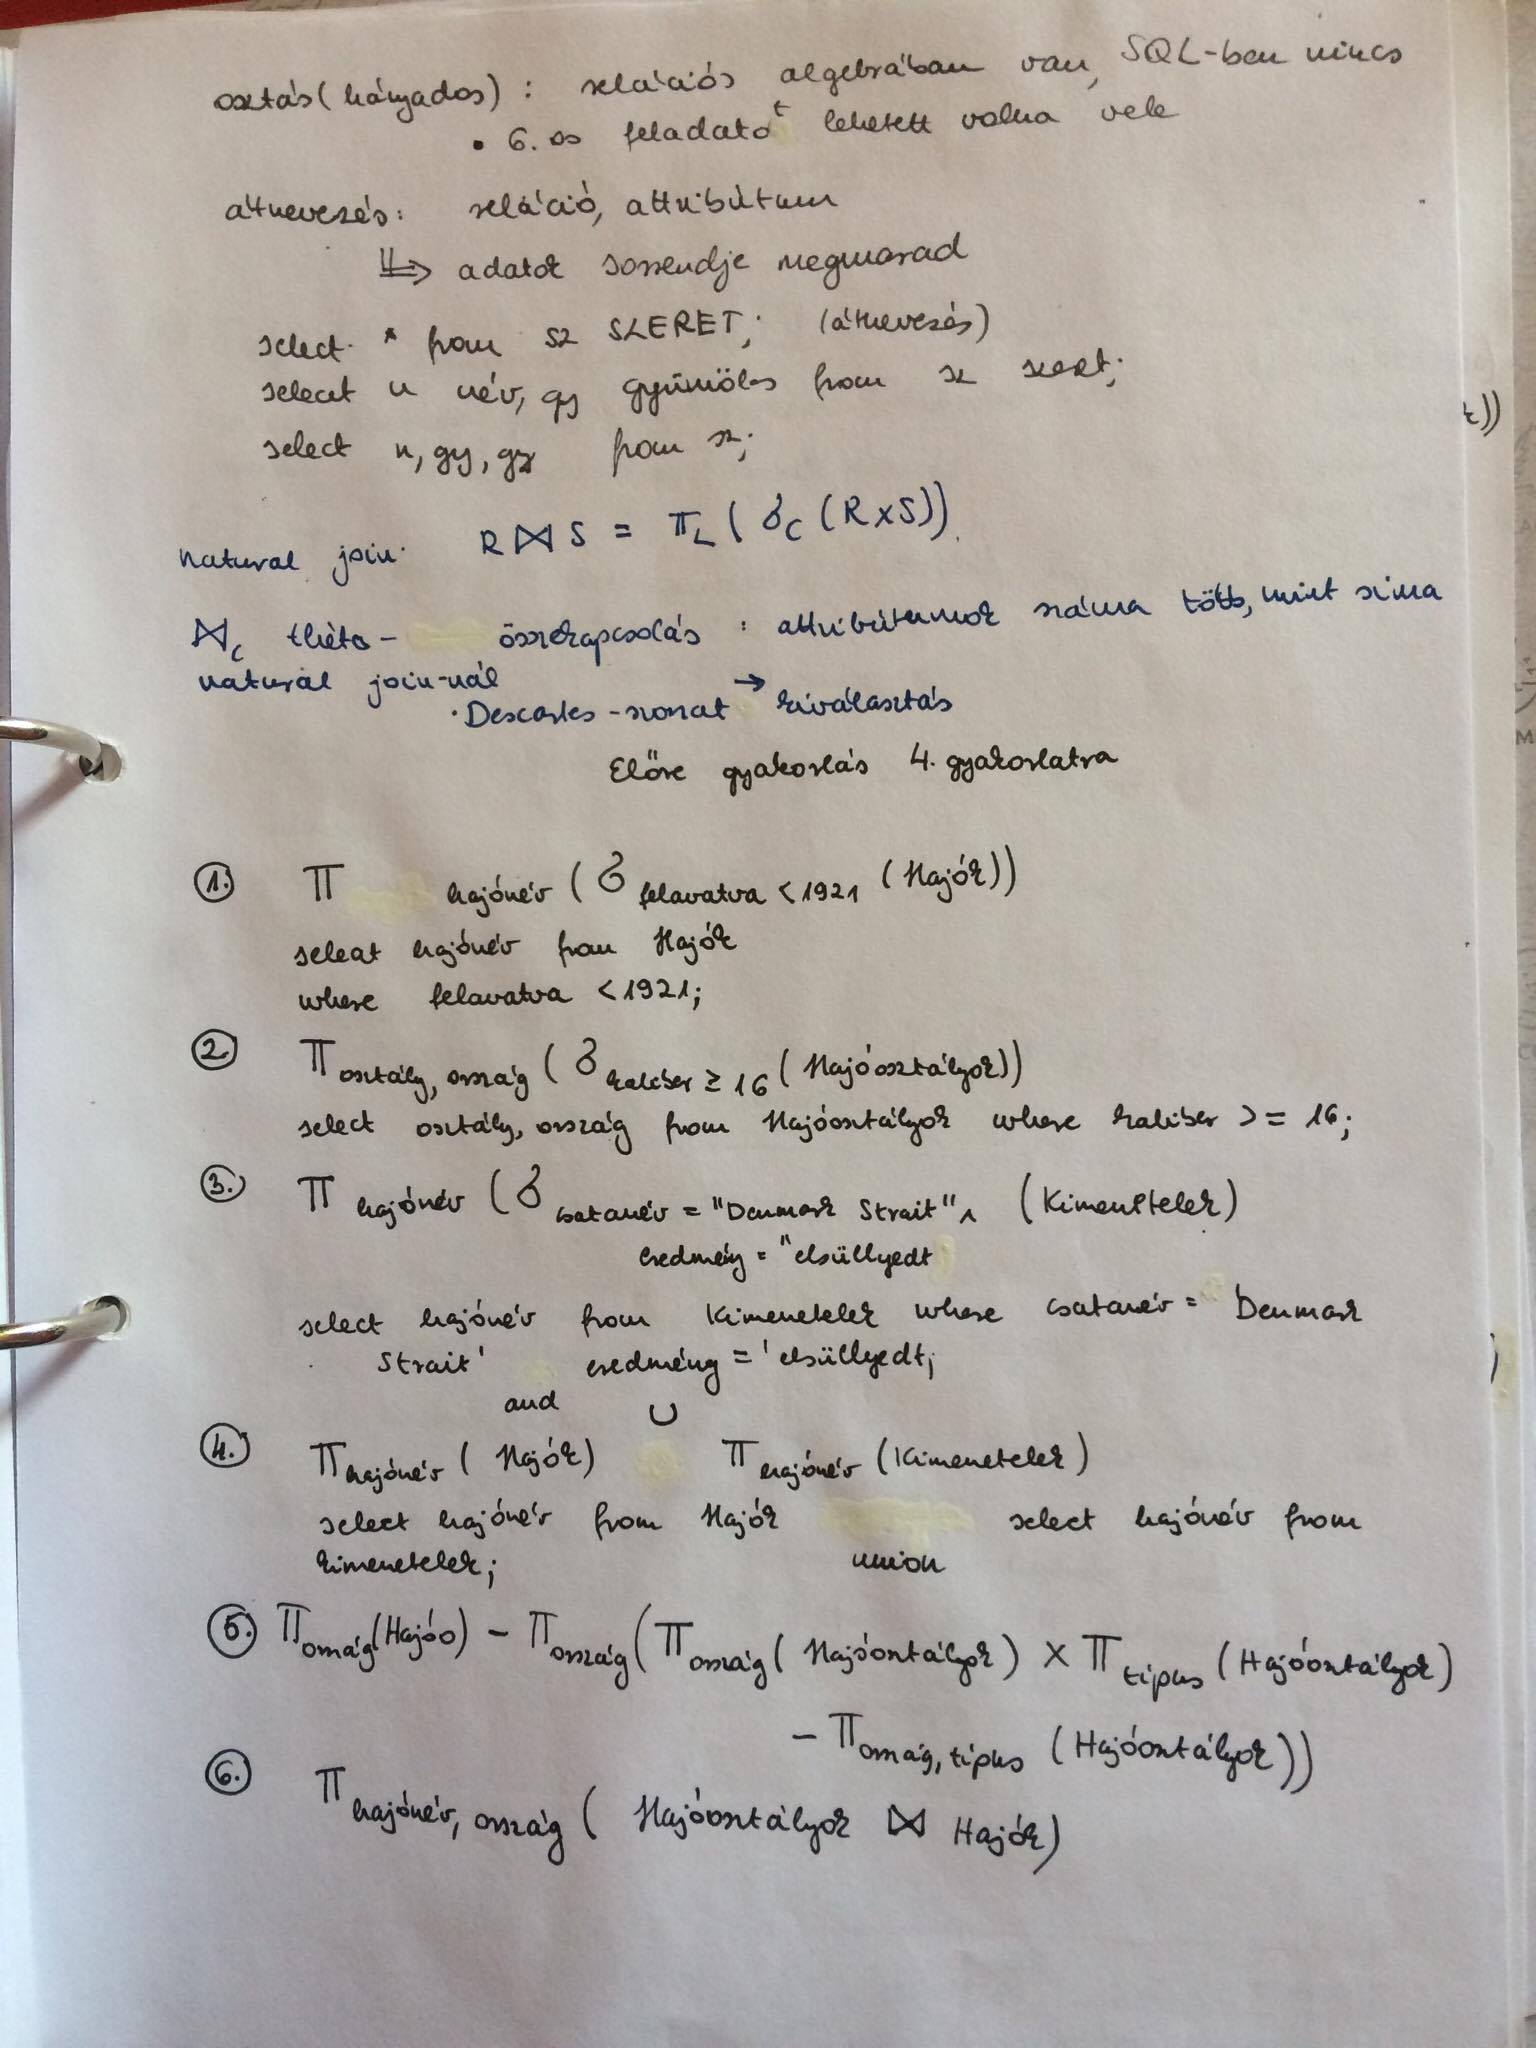 osztás (hányados) : relációs algebrában van, SQL-ben nincs
• 6. os feladatot lehetett volna vele
átnevezés: reláció, attribútum
⇒ adatok sorrendje megmarad
select * from sz SZERET; (átnevezés)
select n név, gy gyümölcs from sz szeret;
select n, gy, gy from sz;
natural join: R ⋈ S = π_L ( σ_C (R x S))
⋈_C théta- összekapcsolás : attribútumok száma több, mint sima
natural join-nál
• Descartes-szorzat → kiválasztás
Előre gyakorlás 4. gyakorlatra
1. π hajónév ( σ felavatva < 1921 (Hajók))
select hajónév from Hajók
where felavatva < 1921;
2. π osztály, ország ( σ kaliber ≥ 16 ( Hajóosztályok))
select osztály, ország from Hajóosztályok where kaliber >= 16;
3. π hajónév ( σ csatanév = "Denmark Strait" ∧ (Kimenetelek)
eredmény = "elsüllyedt
select hajónév from Kimenetelek where csatanév = Denmark
Strait' eredmény = 'elsüllyedt;
and ∪
4. π hajónév ( Hajók) π hajónév (Kimenetelek)
select hajónév from Hajók select hajónév from
kimenetelek; union
5. π ország (Hajóo) - π ország ( π ország ( Hajóosztályok) × π típus (Hajóosztályok)
- π ország, típus (Hajóosztályok))
6. π hajónév, ország ( Hajóosztályok ⋈ Hajók)